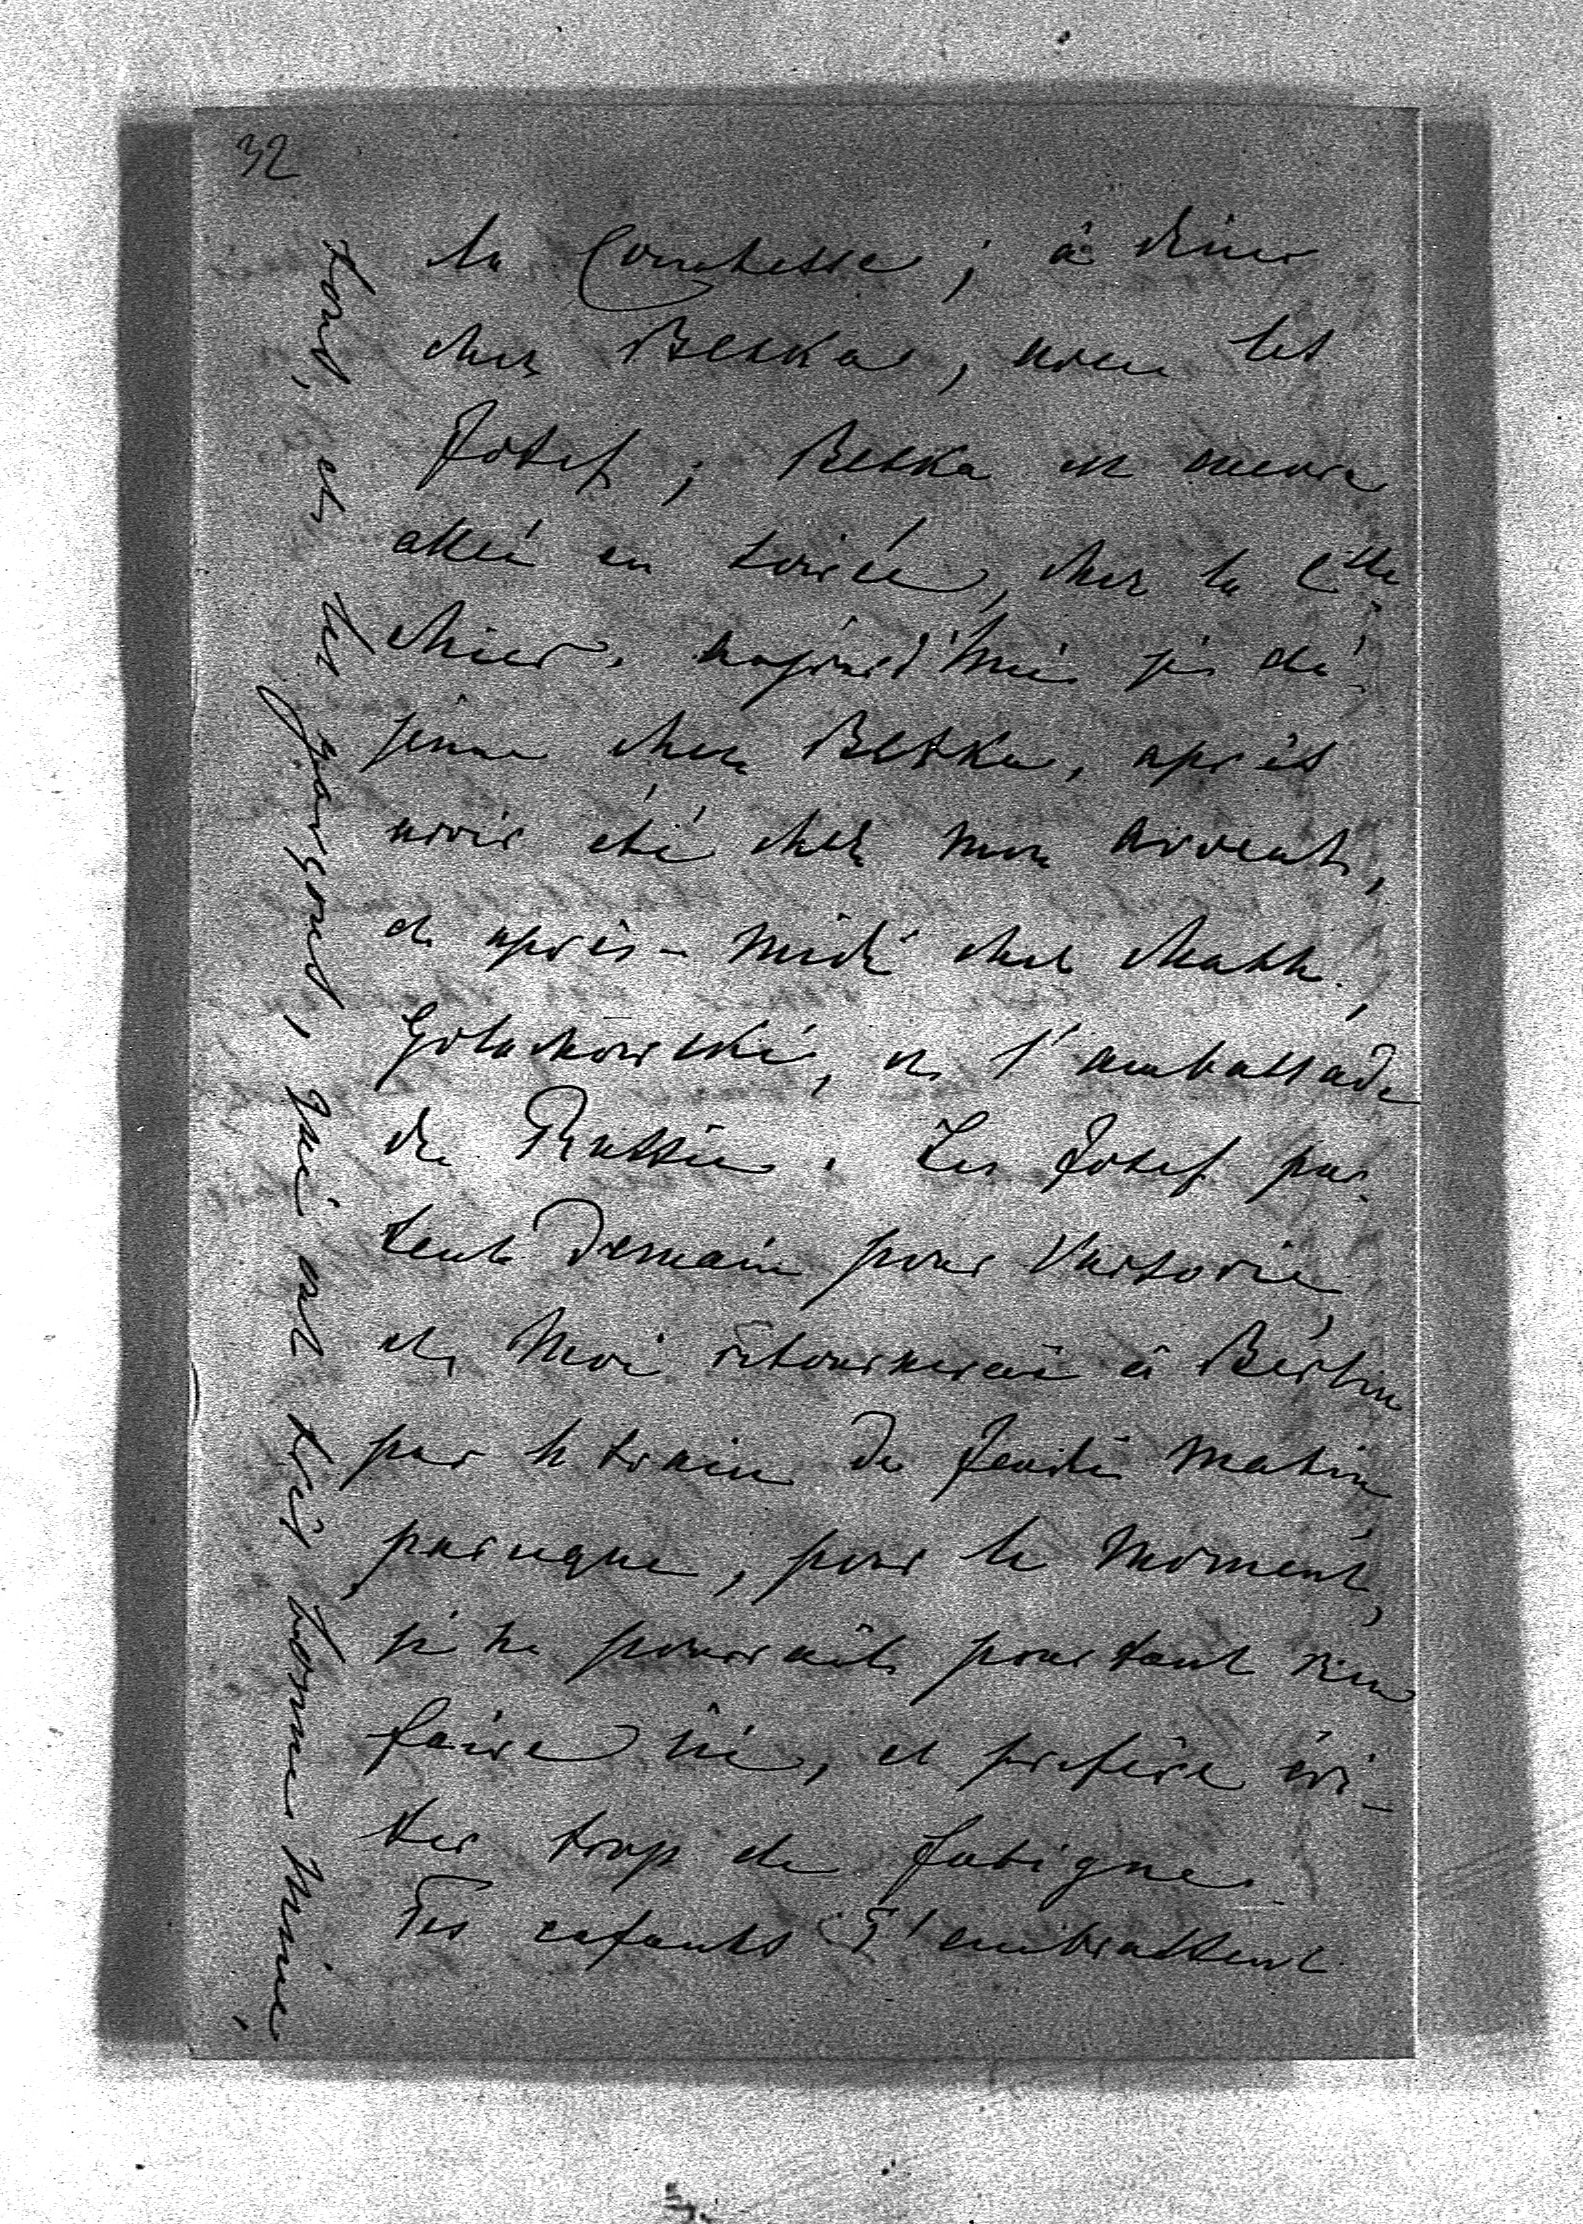 32
la Comtesse ; à diner
chez Betka, avec les
Josef ; Betka est encore
allé en soirée, chez la C'tte
aujourd'hui je dé-
jeune chez Betka, après
avoir été chez mon avocat,
et après-midi chez
Goluchowski, et l'ambassade
de Russie. Les Josef par-
tent demain pour Varsovie,
et moi retournerai à Berlin
par le train de Jeudi matin,
parceque, pour le moment,
je ne pourrais pourtant rien
faire ici, et prefère évi-
ter trop de fatigue.
Tes enfants T'embrassent
tous, et les garçons, qui ont très bonne mine,